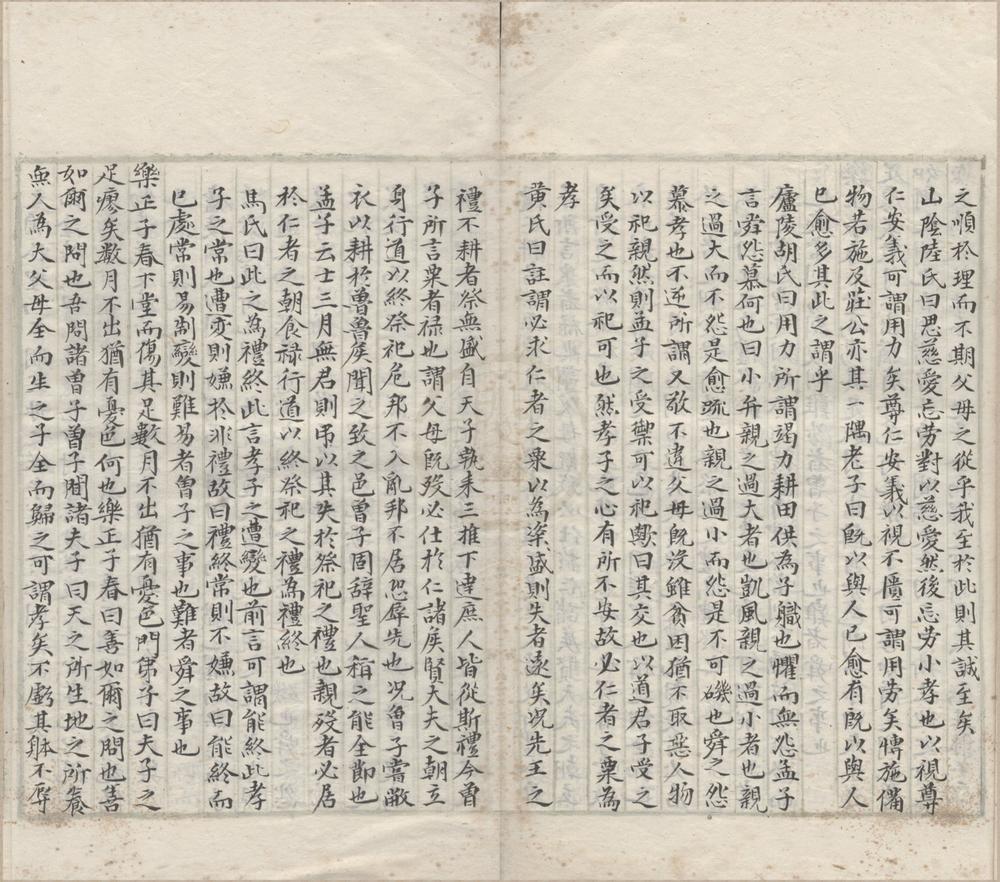 之順於理而不期父母之從乎我至於此則其誠至矣
山陰陸氏曰思慈愛忘勞對以慈愛然後忘劳小孝也以視尊
仁安義可謂用力矣尊仁安義以視不匱可謂用劳矣愽施備
物若施及莊公亦其一隅老子曰既以與人已愈有既以與人
已愈多其此之謂乎
廬陵胡氏曰用力所謂竭力耕田供為子軄也懼而無怨孟子
言舜怨慕何也曰小弁親之過大者也凱風親之過小者也親
之過大而不怨是愈疏也親之過小而怨是不可磯也舜之怨
慕孝也不逆所謂又敬不違父母既沒雖貧困猶不取惡人物
以祀親然則孟子之受禦可以祀歟曰其交也以道君子受之
矣受之而以祀可也然孝子之心有所不安故必仁者之粟為
孝
黄氏曰註謂必求仁者之粟以為粢盛則失者遠矣况先王之
禮不耕者祭無盛自天子執耒三推下達庶人皆從斯禮今曾
子所言粟者禄也謂父母既殁必仕於仁諸侯賢大夫之朝立
身行道以終祭祀危邦不入亂邦不居恐辱先也况曾子嘗敝
衣以耕於魯魯侯聞之致之邑曾子固辞聖人稱之能全節也
孟子云士三月無君則弔以其失於祭祀之禮也親殁者必居
於仁者之朝食禄行道以終祭祀之禮為禮終也
馬氏曰此之為禮終此言孝子之遭變也前言可謂能終此孝
子之常也遭变則嫌於非禮故曰禮終常則不嫌故曰能終而
已處常則易制變則難易者曾子之事也難者舜之事也
樂正子春下堂而傷其足數月不出猶有憂色門弟子曰夫子之
足瘳矣數月不出猶有憂色何也樂正子春曰善如爾之問也善
如爾之問也吾聞諸曾子曾子聞諸夫子曰天之所生地之所養
無人為大父母全而生之子全而歸之可謂孝矣不虧其躰不辱